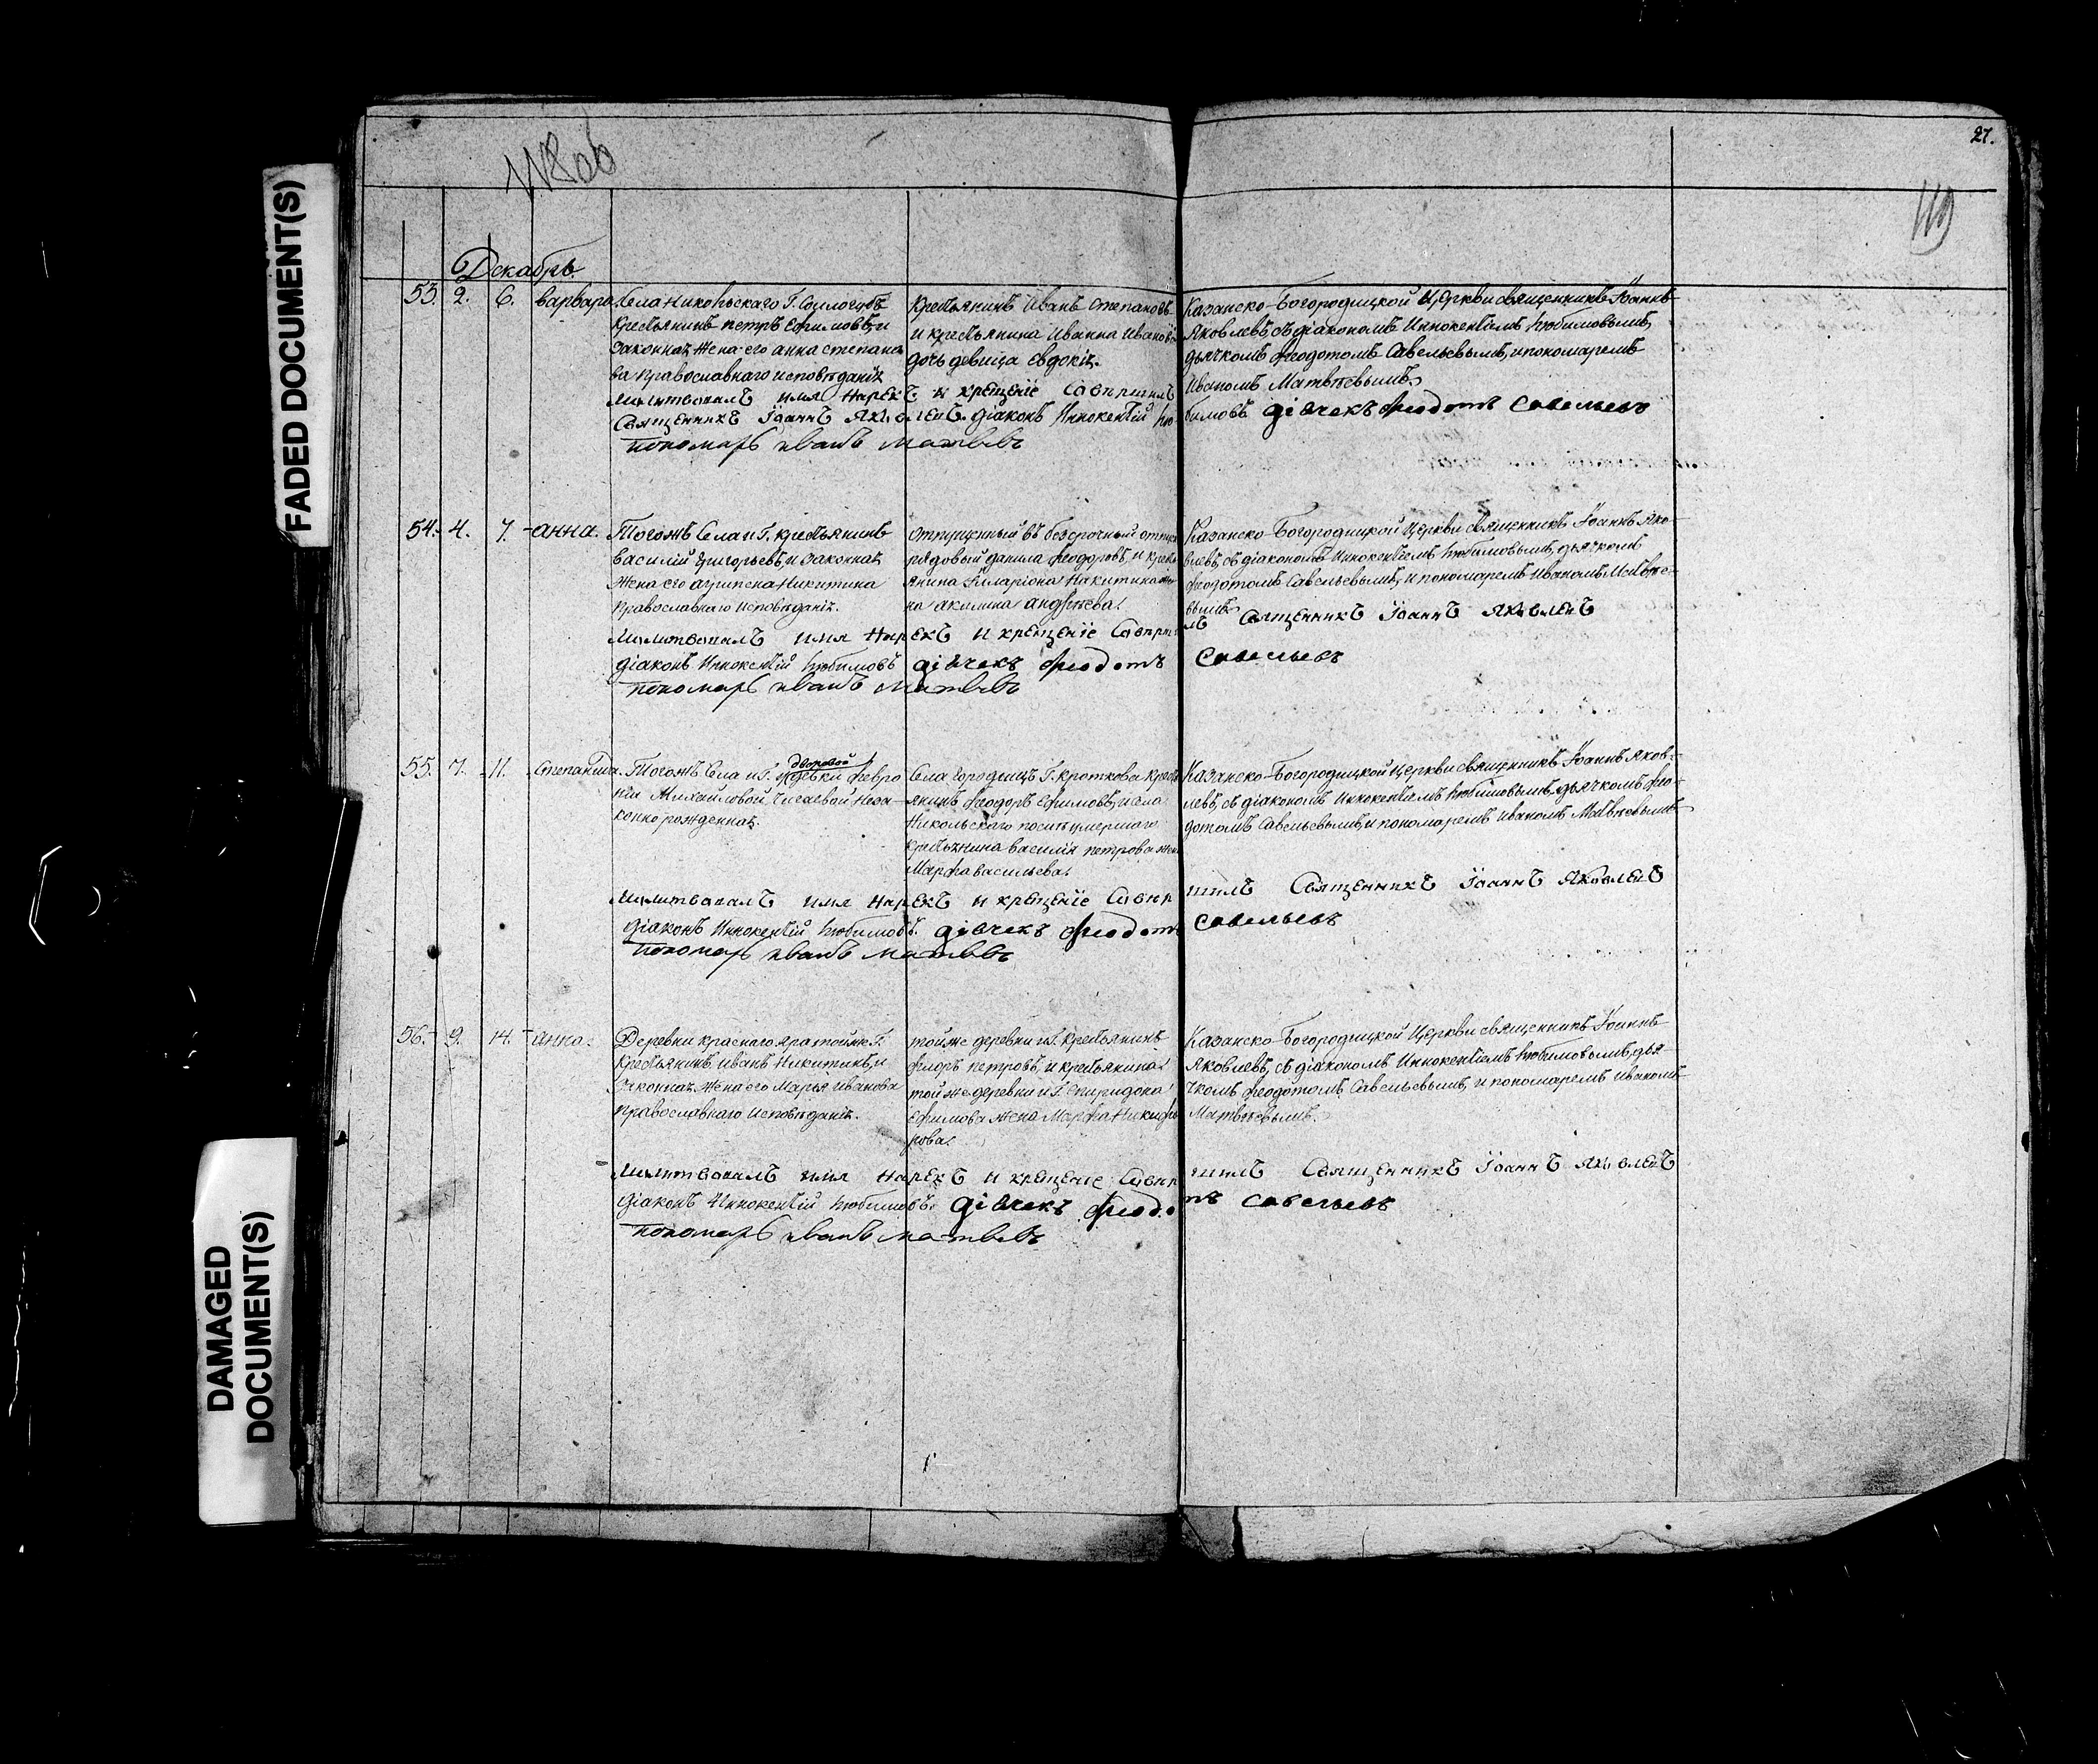 27.
119
Декабрь.
53. 2. 6. Варвара
Села Никольскаго Г.
Крестьянинъ Петръ Ефимовъ, и
законная жена его Анна Степано
ва православнаго исповѣданія
Крестьянинъ Иванъ Степановъ
и крестьянина Иванна Иванова
дочь девица Евдокія.
Казанско-Богородицкой Церкви священникъ Іоаннъ
Яковлевъ, съ діакономъ Иннокентіемъ Любимовымъ,
дьячкомъ Феодотомъ Савельевымъ, и пономаремъ
Иваномъ Матвѣевымъ.
Молитвовалъ имя нарекъ и крещеніе совершилъ
Священникъ Іоаннъ Яковлевъ. Діаконъ Иннокентій Любимовъ дівчекъ Феодотъ Савельевъ
пономарь иванъ матвевъ
54. 4. 7. Анна.
Тогожъ Села и Г. крестьянинъ
Василій Григорьевъ, и законная
жена его Агрипена Никитина
православнаго исповѣданія.
Отпущенный въ безсрочный отпускъ
рядовый Данила Феодоровъ, и кресть
янина Илларіона Никитина же
на Акилина Андрѣева.
Казанско-Богородицкой Церкви священникъ Іоаннъ Яко-
влевъ, съ діакономъ Иннокентіемъ Любимовымъ, дьячкомъ
Феодотомъ Савельевымъ, и пономаремъ Иваномъ Матвѣе-
вымъ.
Молитвовалъ имя нарекъ и крещеніе совершилъ Священникъ Іоаннъ Яковлевъ
діаконъ Иннокентій Любимовъ дівчекъ Феодотъ Савельевъ
пономарь иванъ матвевъ
55. 7. 11. Степанида.
Тогожъ Села и Г. дворовой девки Февро
ніи Михайловой, незa-
конно рожденная.
Села Городищъ Г. Кроткова кресть
янинъ Феодоръ Ефимовъ, и села
Никольскаго послѣ умершаго
крестьянина Василія Петрова жена
Марфа Васильева.
Казанско-Богородицкой Церкви священникъ Іоаннъ Яков-
левъ, съ діакономъ Иннокентіемъ Любимовымъ, дьячкомъ Фео-
дотомъ Савельевымъ, и пономаремъ Иваномъ Матвѣевымъ
Молитвовалъ имя нарекъ и крещеніе совершилъ Священникъ Іоаннъ Яковлевъ
діаконъ Иннокентій Любимовъ. дівчекъ Феодотъ Савельевъ
пономарь иванъ матвевъ
56. 9. 14. Анна.
Деревни Краснаго Яра той же Г.
Крестьянинъ Иванъ Никитинъ, и
законная жена его Марья Иванова
православнаго исповѣданія.
той же деревни и Г. Крестьянинъ
Флоръ Петровъ, и крестьянина
той же деревни и Г. Спиридона
Ефимова жена Марфа Никифо
рова.
Казанско-Богородицкой Церкви священникъ Іоаннъ
Яковлевъ, съ діакономъ Иннокентіемъ Любимовымъ, дья-
чкомъ Феодотомъ Савельевымъ, и пономаремъ Иваномъ
Матвѣевымъ.
Молитвовалъ имя нарекъ и крещеніе совершилъ Священникъ Іоаннъ Яковлевъ
діаконъ Иннокентій Любимовъ. дівчекъ Феодотъ Савельевъ
пономарь иванъ матвевъ
FADED DOCUMENT(S)
DAMAGED
DOCUMENT(S)